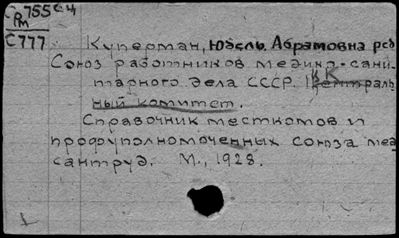 Ср 755 с.ч
Рм
С777
Куперман, Юдель Абрамовна ред
Союз работников медико-сани-
тарного дела СССР. Централь-
ный комитет.
Справочник месткомов и
профуполномоченных союза мед
сантруд. М., 1928.